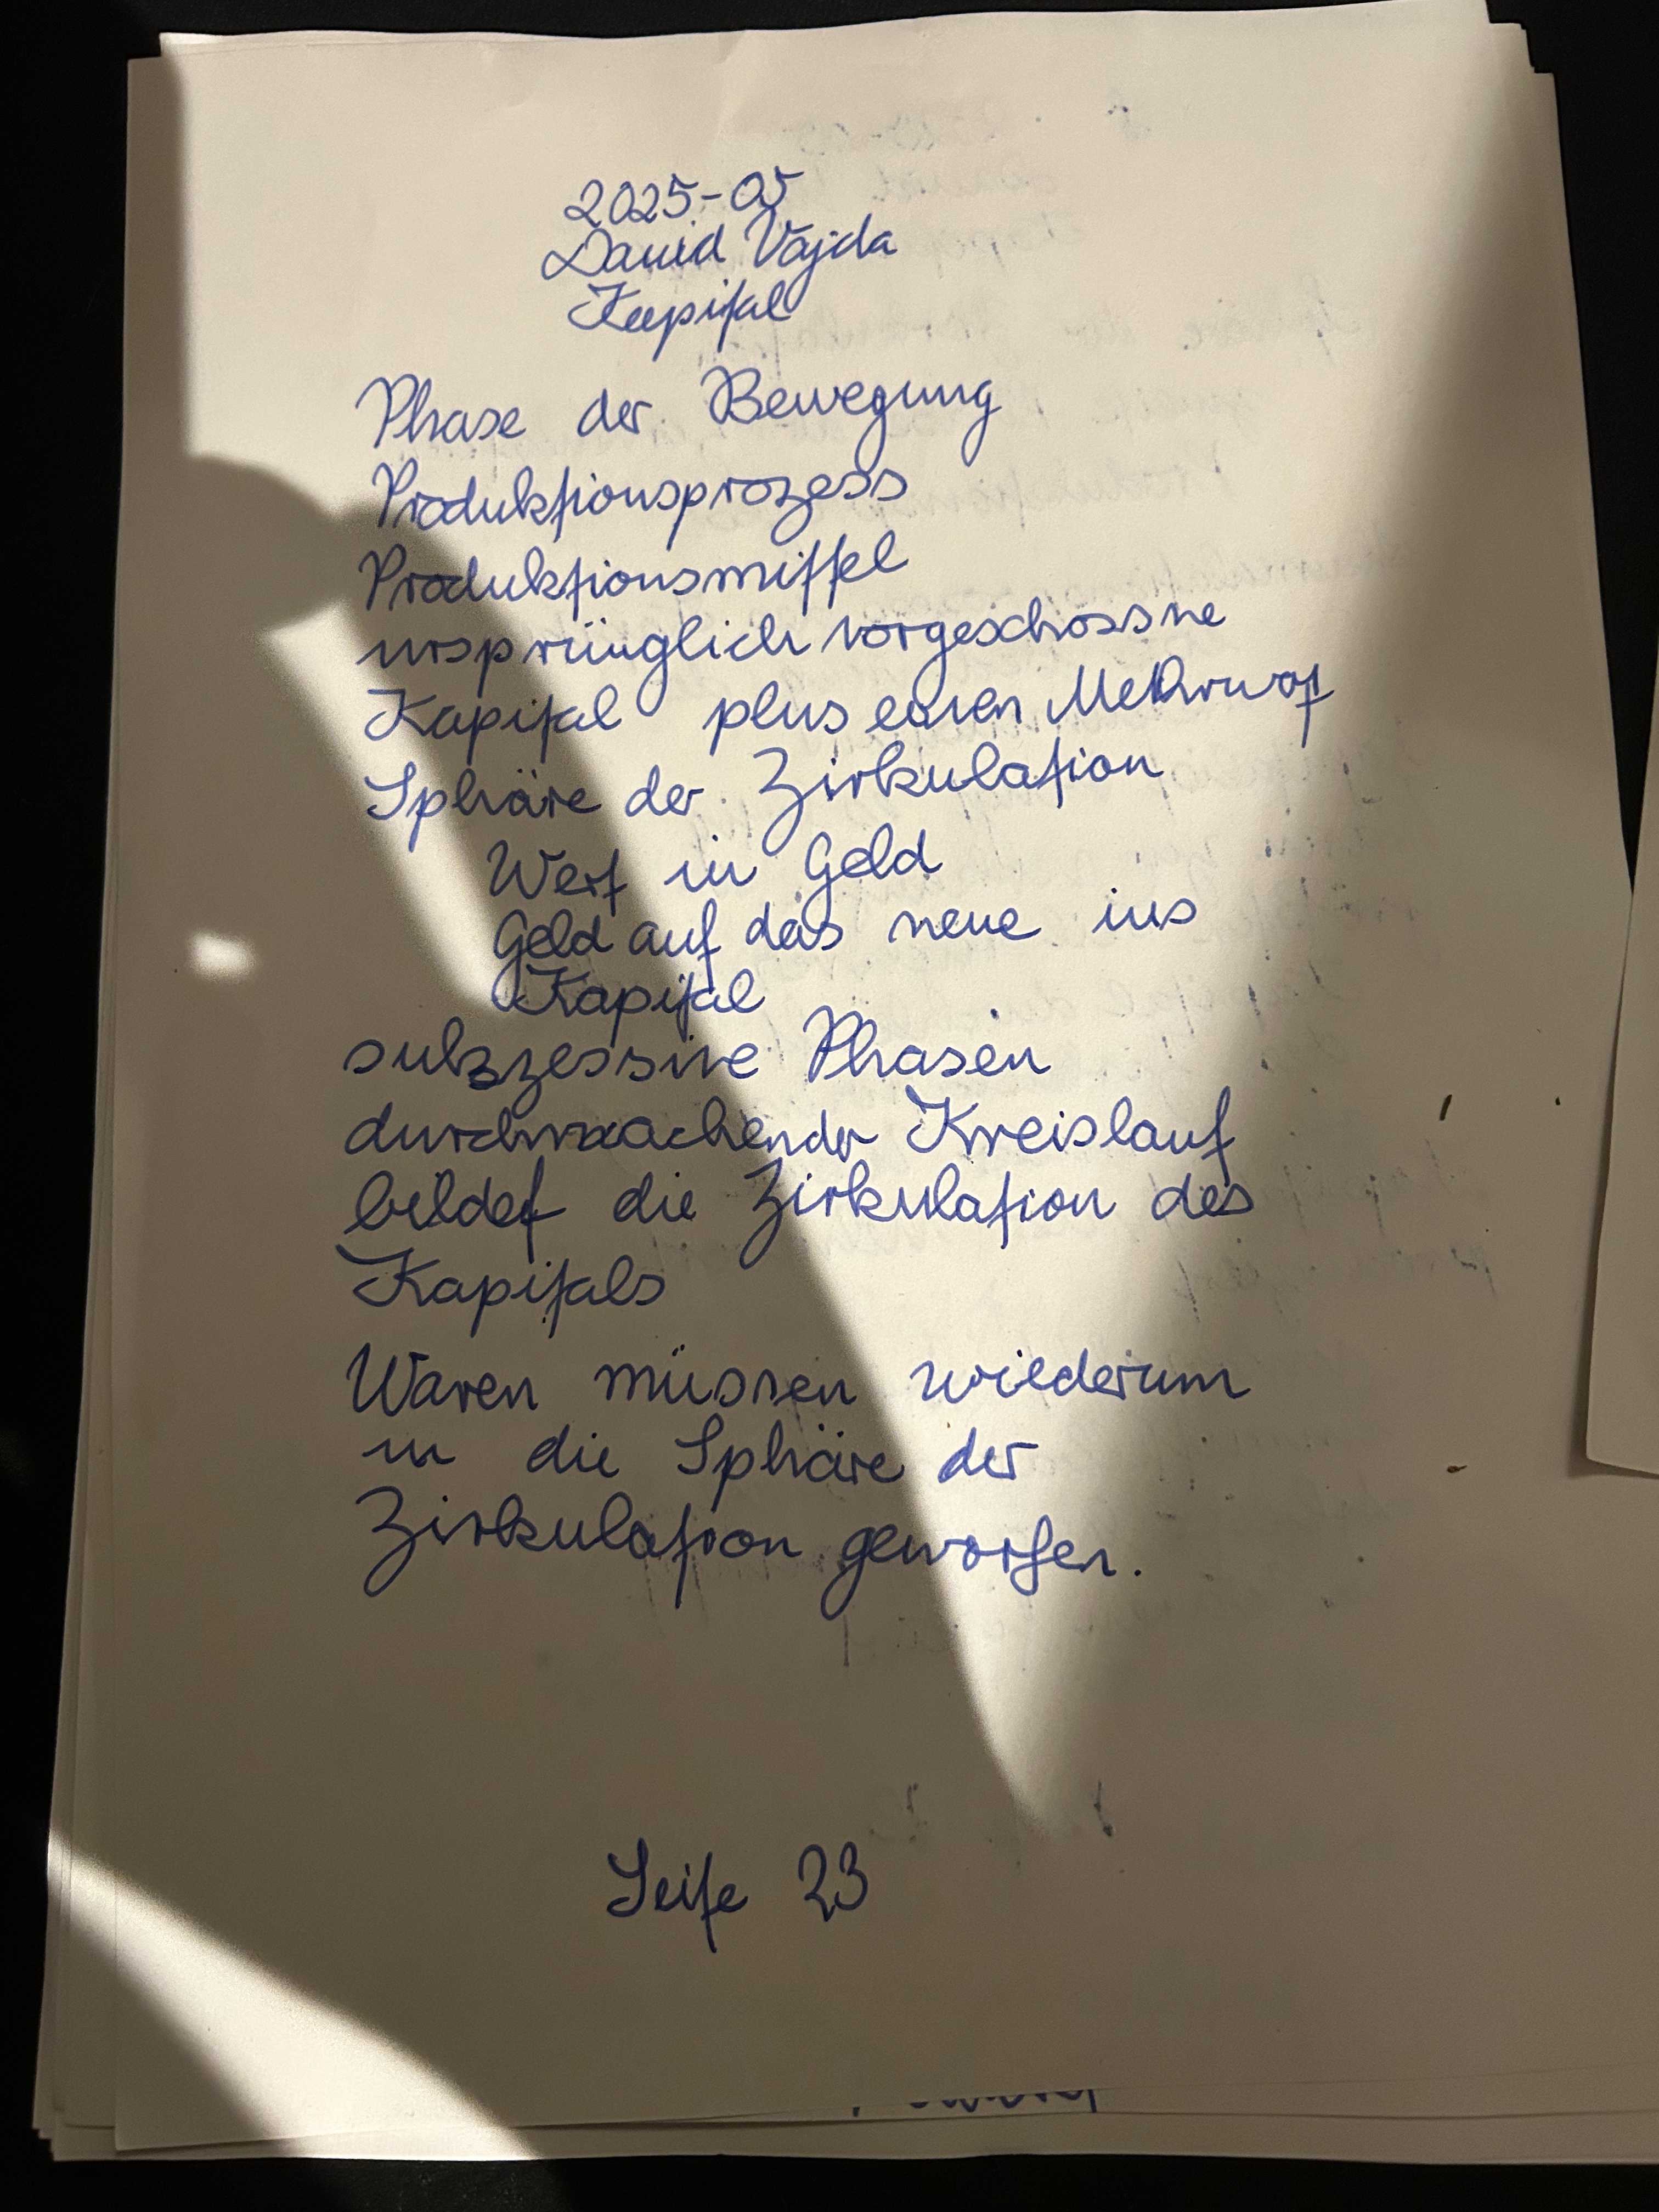 2025-05
David Vajda
Kapital
Phase der Bewegung
Produktionsprozess
Produktionsmittel
ursprünglich vorgeschossne
Kapital plus einen Mehrwert
Sphäre der Zirkulation
Wert in Geld
Geld auf das neue ins
Kapital
sukzessive Phasen
durchmachender Kreislauf
bildet die Zirkulation des
Kapitals
Waren müssen wiederum
in die Sphäre der
Zirkulation geworfen.
Seite 23